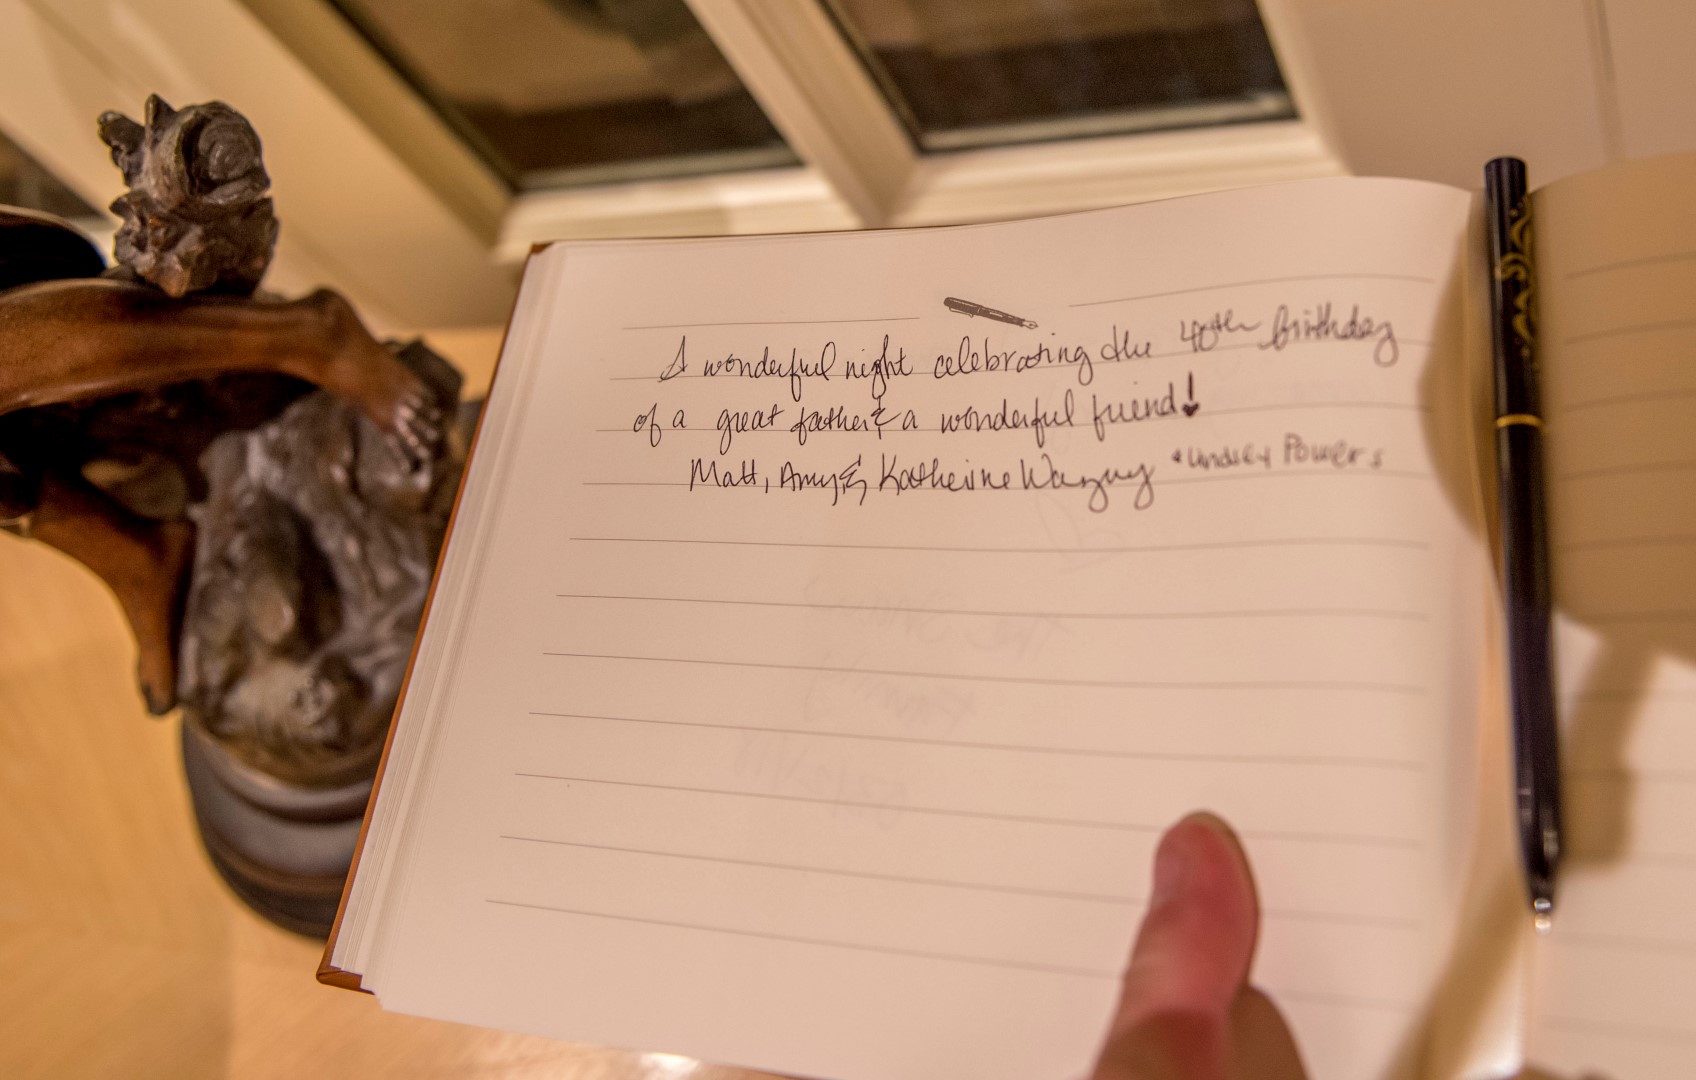 A wonderful night celebrating the 40th birthday
of a great father & a wonderful friend!
Matt, Amy & Katherine Wazny * Lindsey Powers